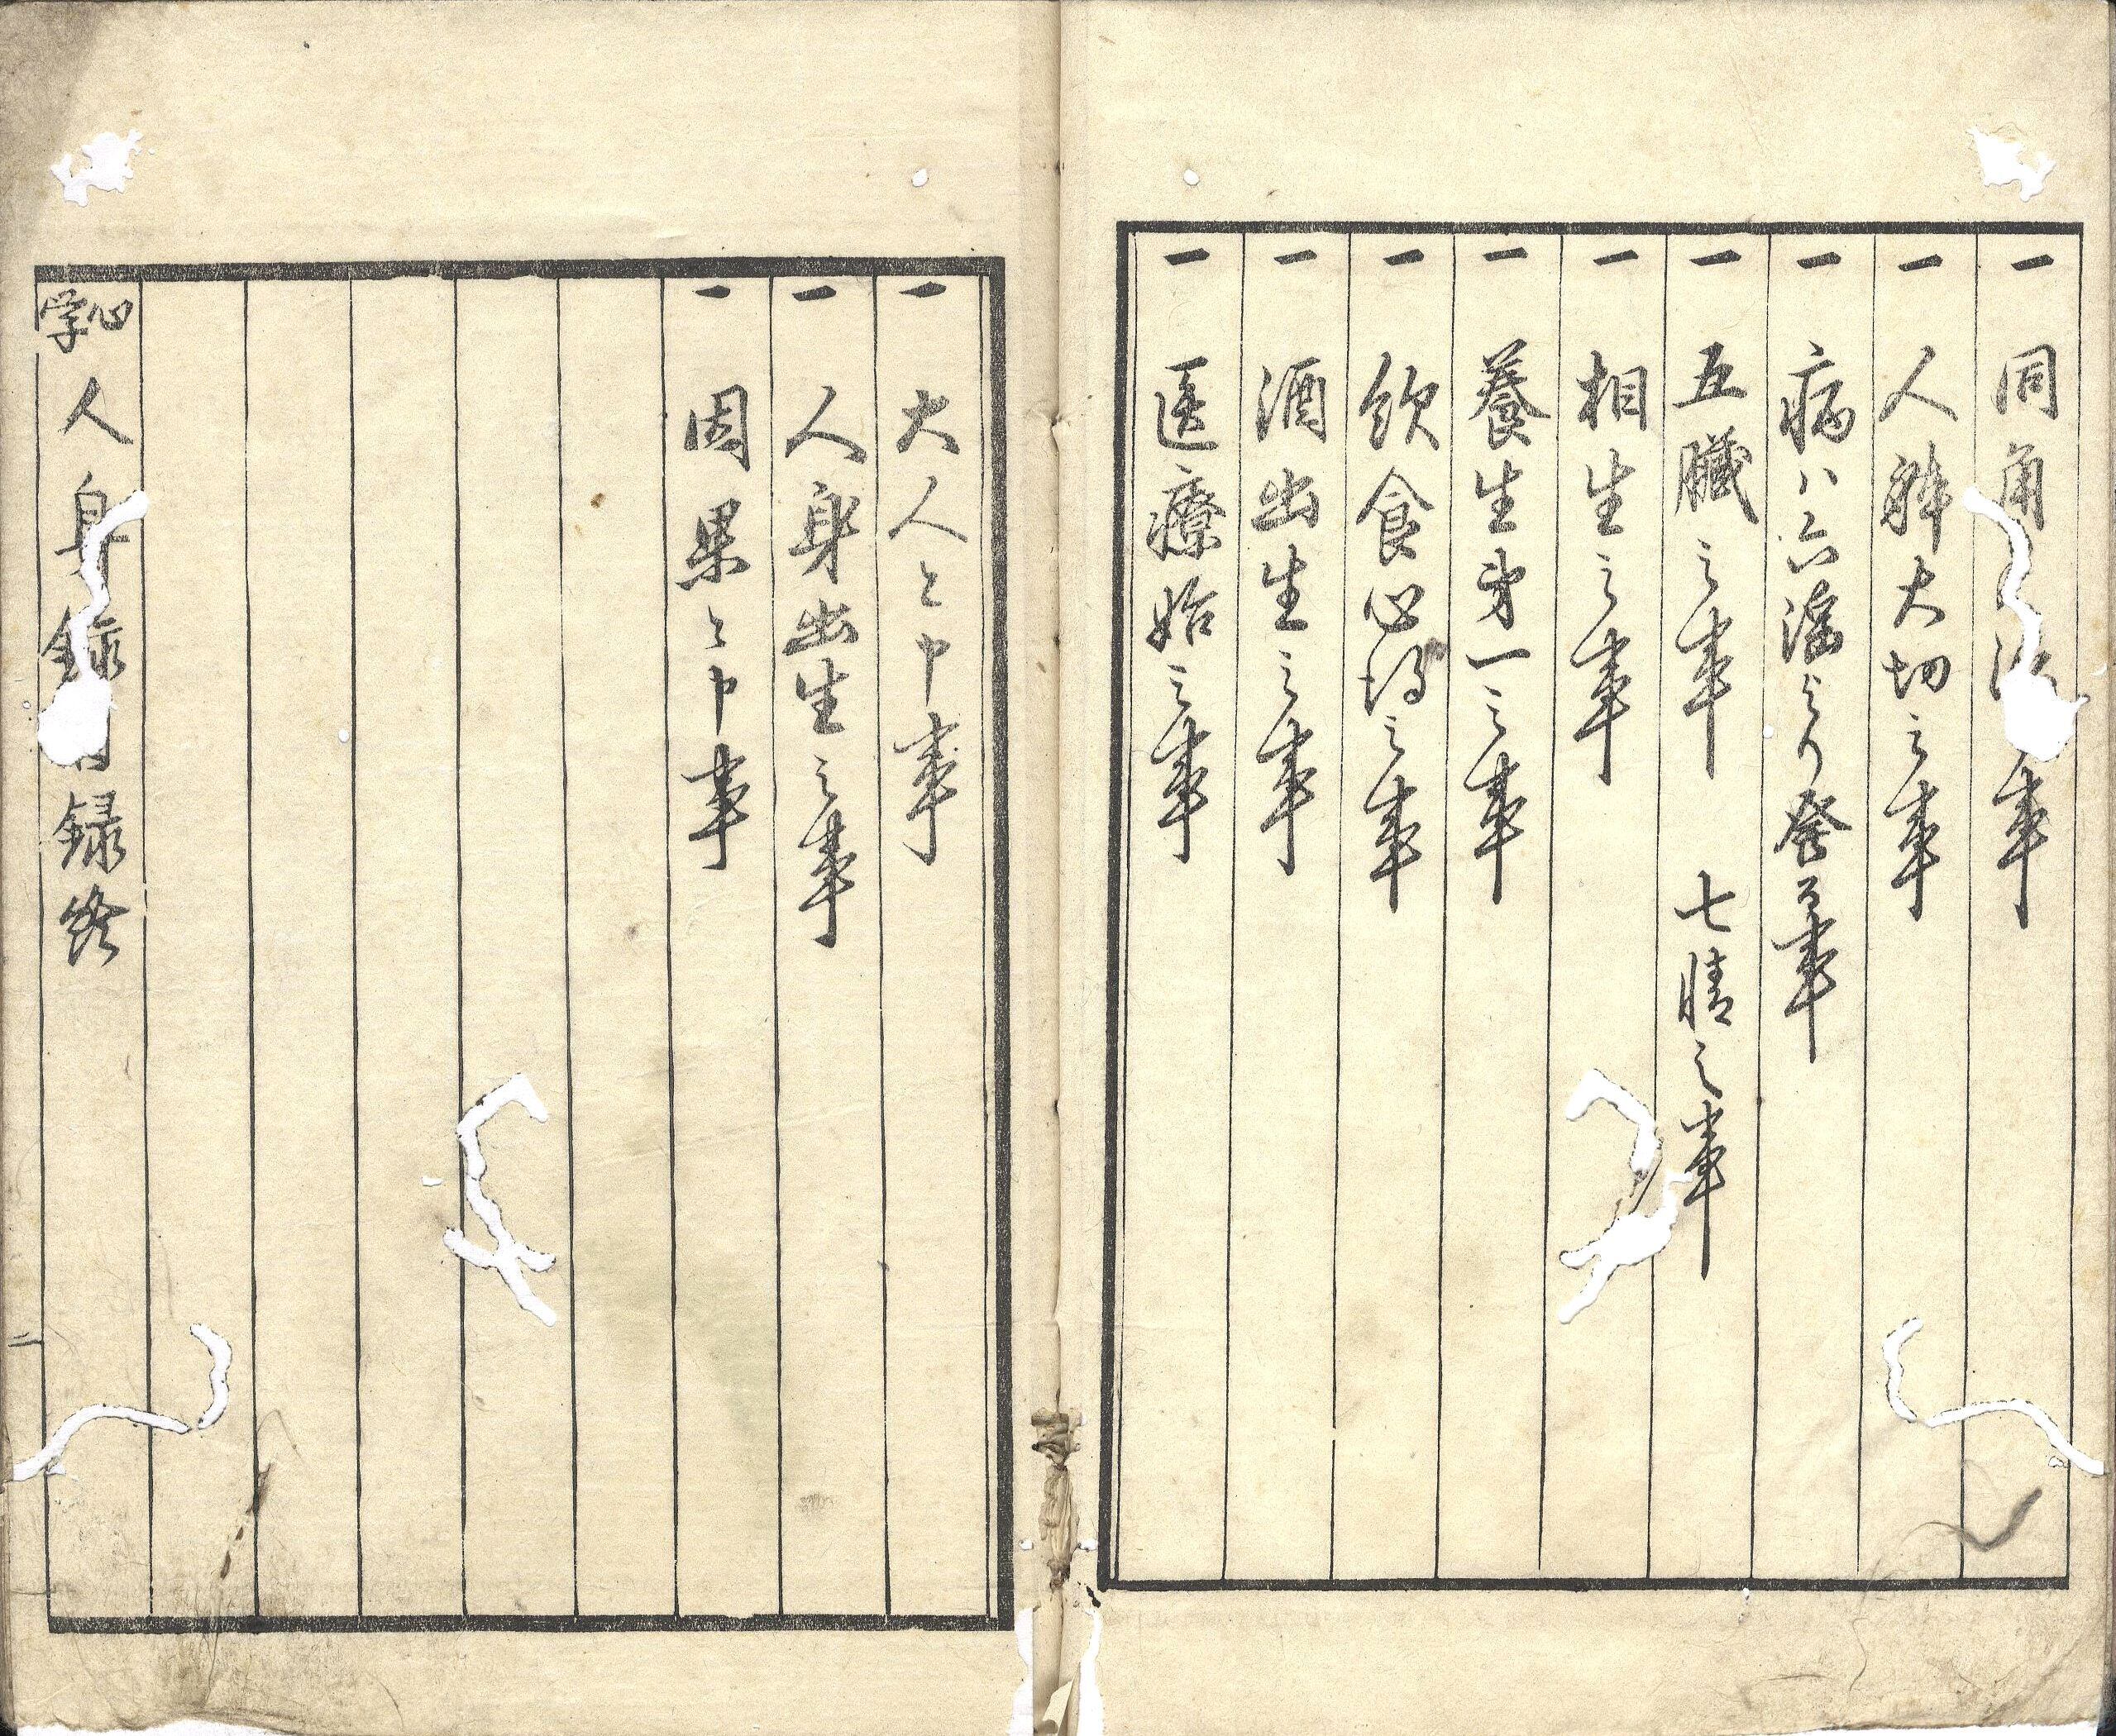 一 同角事
一 人躰大切之事
一 病ハ六淫より発る事
一 五臓之事 七情之事
一 相生之事
一 養生第一之事
一 飲食心得之事
一 酒出生之事
一 医療始之事
一 大人と申事
一 人身出生之事
一 因果と申事
心学 人身録目録終